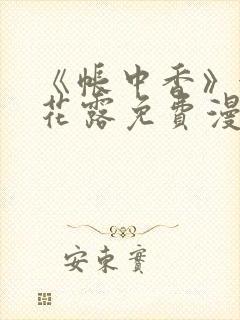 《帐中香》
花露免费漫
安东实